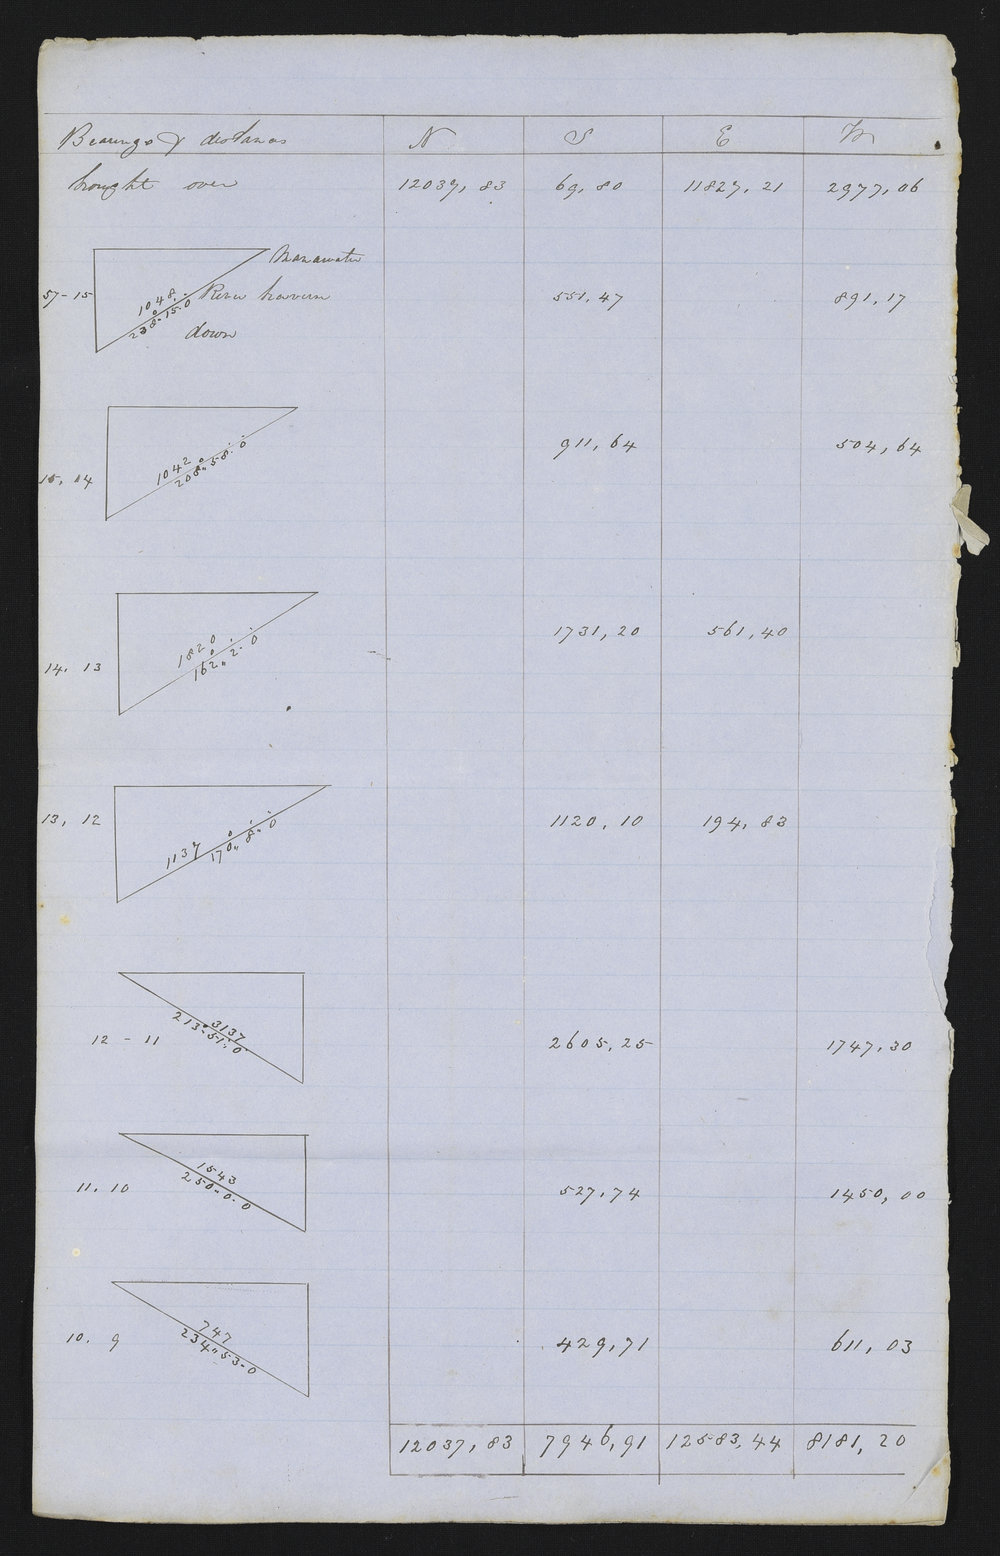 Bearings & distances N S E W
brought over 12037,83 69,80 11827,21 2977,06
Manawatu
57-15 1048 238°15.0 River traverse 551,47 891,17
down
15,14 1042 208°58.0 911,64 504,64
14.13 1820 162°2.0 1731,20 561,40
13,12 1137 170°8.0 1120,10 194,83
12-11 3137 213°51.0 2605,25 1747,30
11.10 1543 250-0-0 527,74 1450,00
10.9 747 234"53-0 429,71 611,03
12037,83 7946,91 12583,44 8181,20